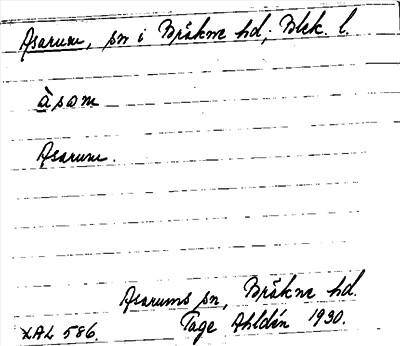 Asarum, sn i Bräkne hd, Blek. l.
àsam
Asarum.
Asarums sn, Bräkne hd.
LAL 586. Tage Ahldén 1930.